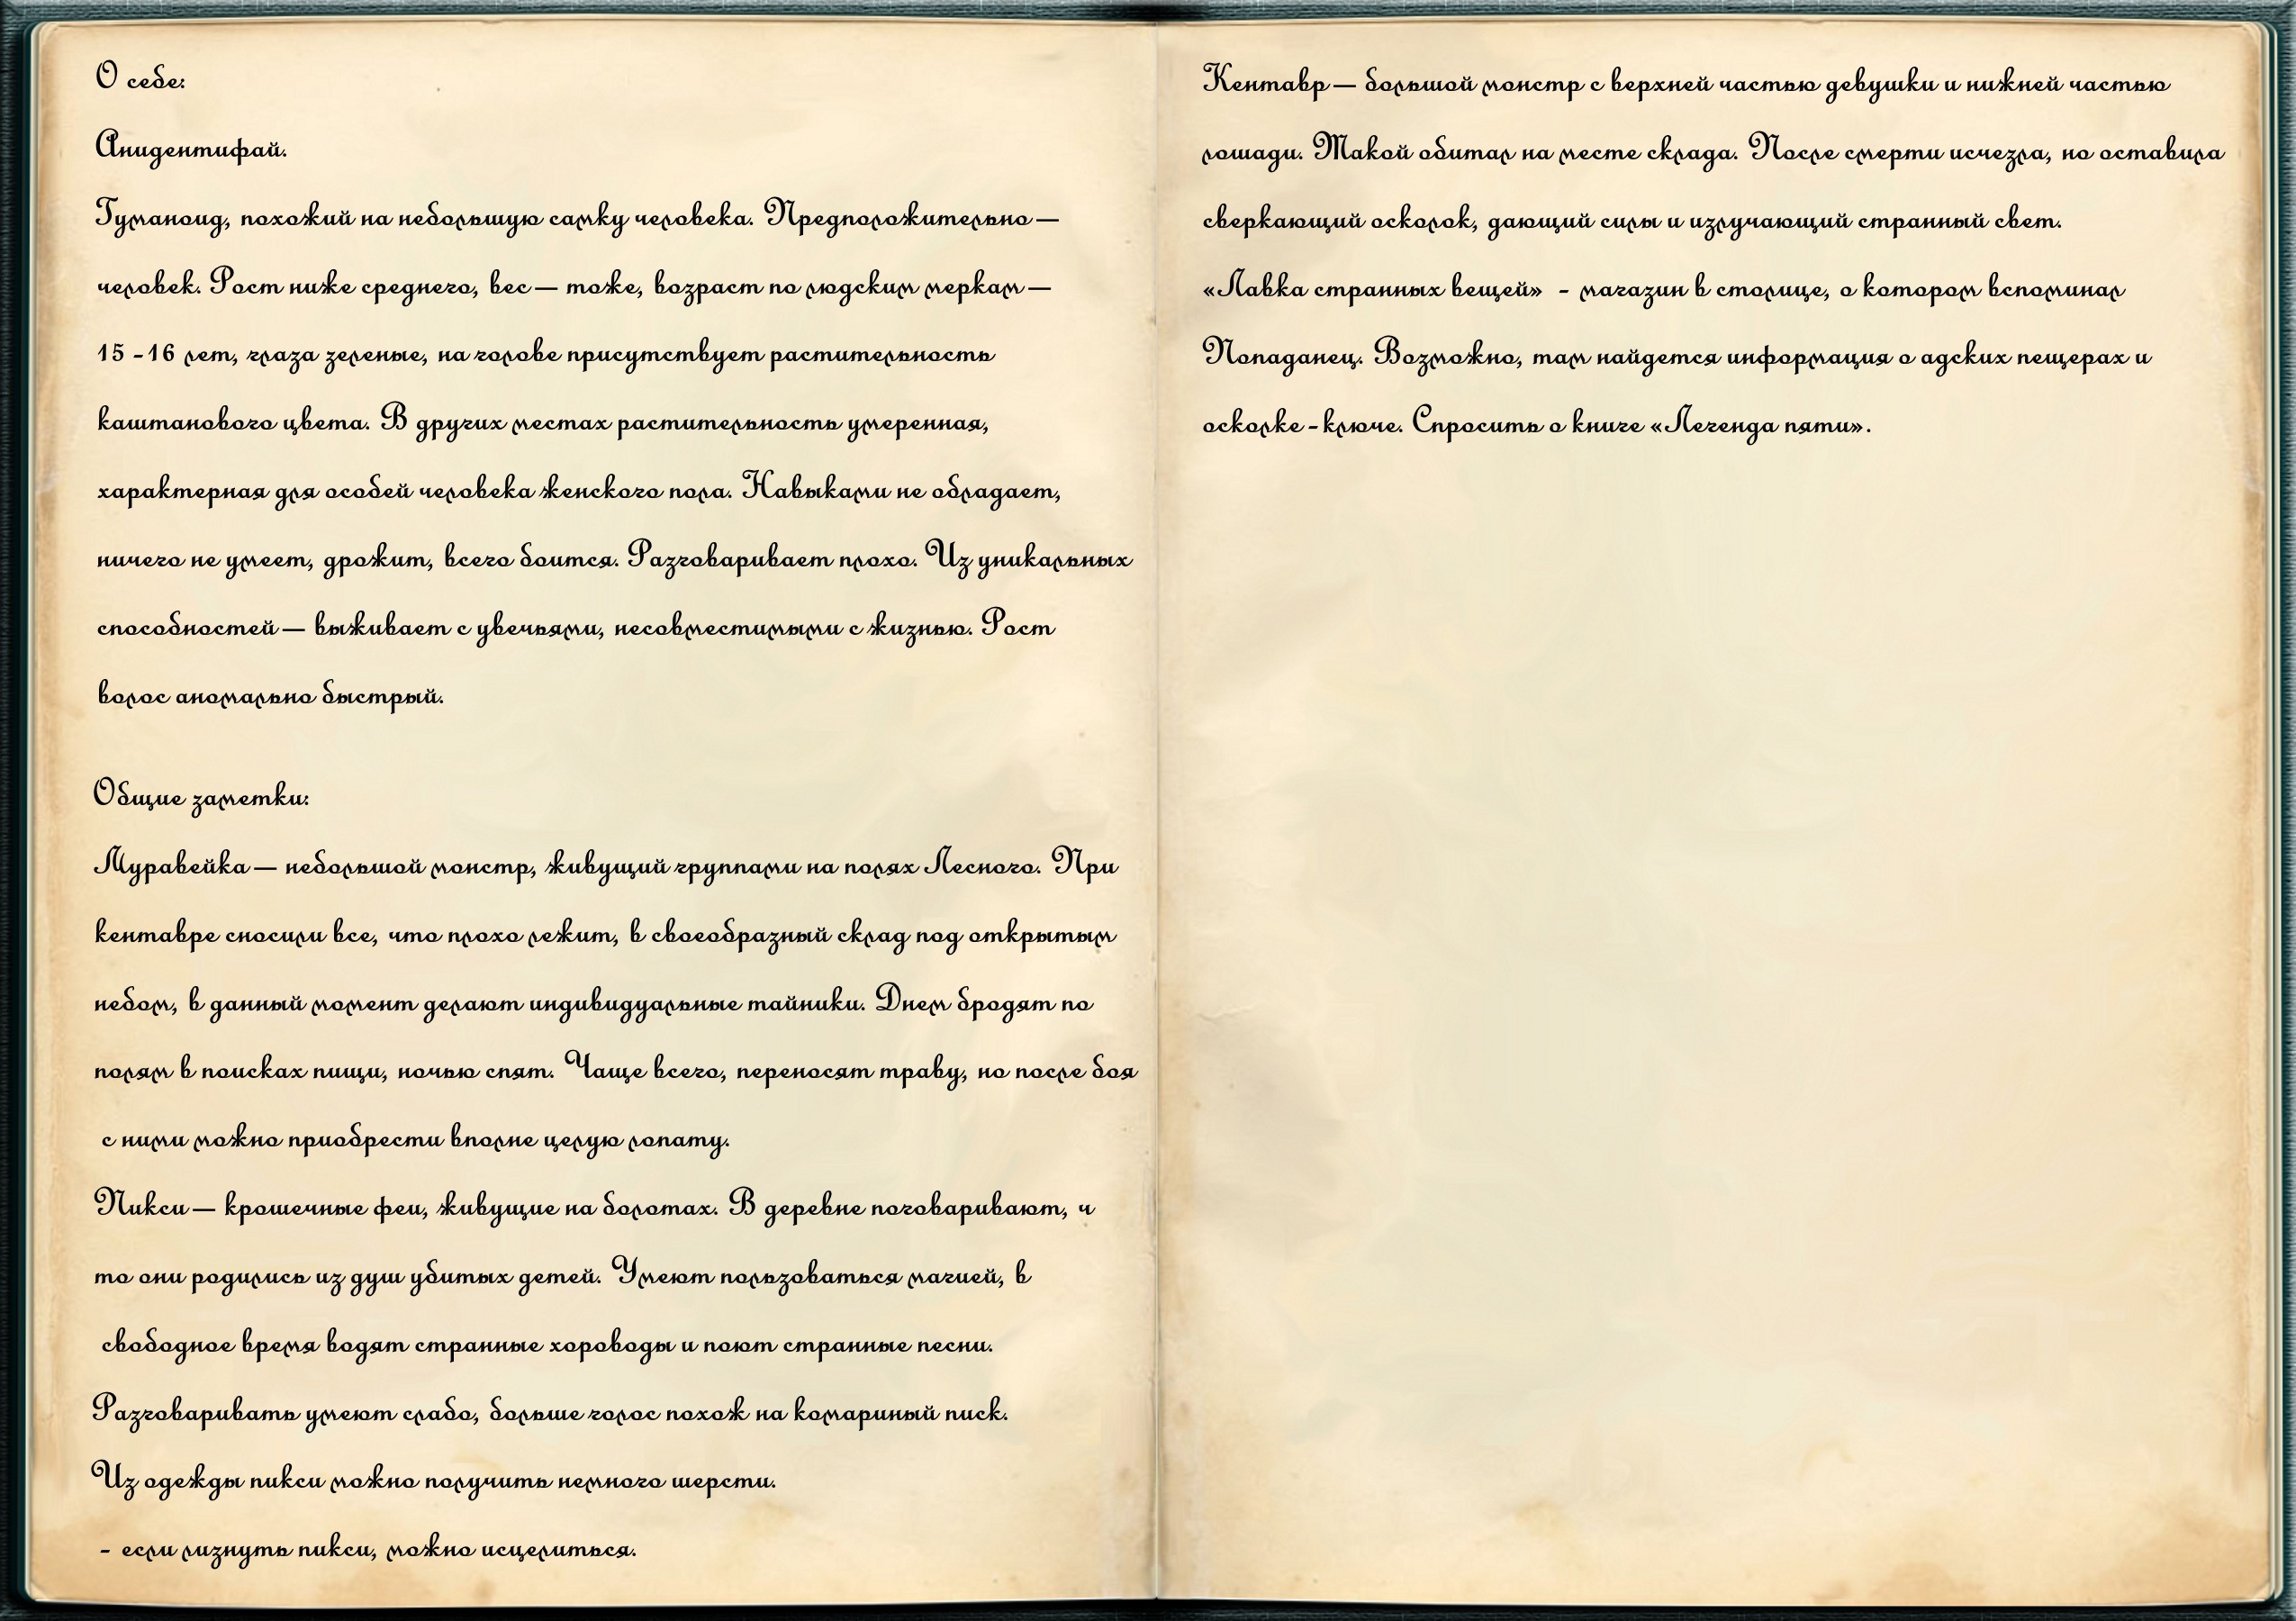 О себе:
Анидентифай.
Гуманоид, похожий на небольшую самку человека. Предположительно —
человек. Рост ниже среднего, вес — тоже, возраст по людским меркам —
15 -16 лет, глаза зеленые, на голове присутствует растительность
каштанового цвета. В других местах растительность умеренная,
характерная для особей человека женского пола. Навыками не обладает,
ничего не умеет, дрожит, всего боится. Разговаривает плохо. Из уникальных
способностей — выживает с увечьями, несовместимыми с жизнью. Рост
волос аномально быстрый.
Общие заметки:
Муравейка — небольшой монстр, живущий группами на полях Лесного. При
кентавре сносили все, что плохо лежит, в своеобразный склад под открытым
небом, в данный момент делают индивидуальные тайники. Днем бродят по
полям в поисках пищи, ночью спят. Чаще всего, переносят траву, но после боя
с ними можно приобрести вполне целую лопату.
Пикси — крошечные феи, живущие на болотах. В деревне поговаривают, ч
то они родились из душ убитых детей. Умеют пользоваться магией, в
свободное время водят странные хороводы и поют странные песни.
Разговаривать умеют слабо, больше голос похож на комариный писк.
Из одежды пикси можно получить немного шерсти.
- если лизнуть пикси, можно исцелиться.
Кентавр — большой монстр с верхней частью девушки и нижней частью
лошади. Такой обитал на месте склада. После смерти исчезла, но оставила
сверкающий осколок, дающий силы и излучающий странный свет.
«Лавка странных вещей» - магазин в столице, о котором вспоминал
Попаданец. Возможно, там найдется информация о адских пещерах и
осколке -ключе. Спросить о книге «Легенда пяти».